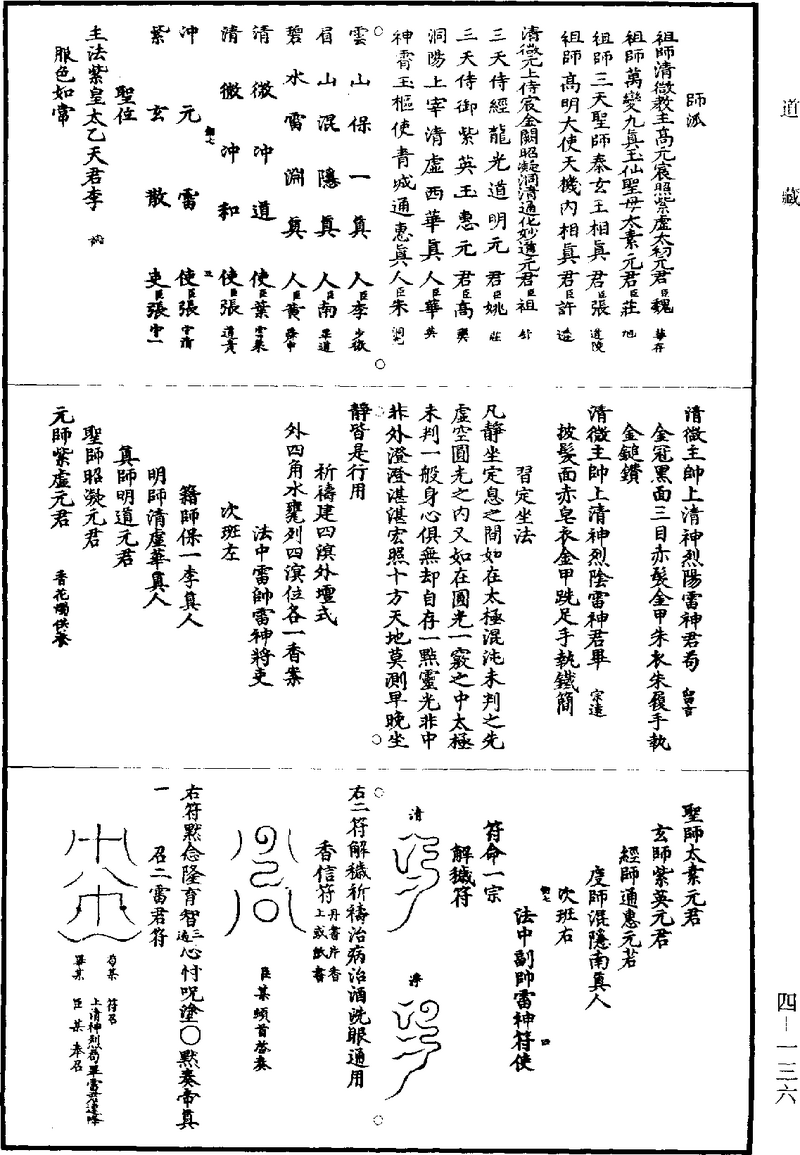 道藏
師派
祖師清微教主高元宸照紫虛太初元君臣魏華存
祖師萬變九真玉仙聖母太素元君臣莊旭
祖師三天聖師泰玄王相真君臣張道陵
祖師高明大使天機內相真君臣許遜
清微元上侍宸金闕昭凝洞清通化妙道元君臣祖舒
三天侍經龍光道明元君臣姚莊
三天侍御紫英玉惠元君臣高奭
洞陽上宰清虛西華真人臣華英
神霄玉樞使青城通惠真人臣朱洞元
雲山保一真人臣李少微
眉山混隱真人臣南畢道
碧水雷淵真人臣黃舜申
清微沖道使臣葉雲萊
清微沖和使臣張道貴
沖元雷使臣張守清
紫玄散吏臣張守一
聖位
主法紫皇太乙天君李
服色如常
清微主帥上清神烈陽雷神君苟留吉
金冠黑面三目赤髮金甲朱衣朱履手執
金鎚鑽
清微主帥上清神烈陰雷神君畢宗遠
披髮面赤皂衣金甲跣足手執鐵簡
習定坐法
凡靜坐定息之間如在太極混沌未判之先
虛空圓光之內又如在圓光一竅之中太極
未判一般身心俱無却自存一點靈光非中
非外澄澄湛湛宏照十方天地莫測早晚坐
靜皆是行用
祈禱建四溟外壇式
外四角水甕列四溟位各一香案
法中雷帥雷神將吏
次班左
籍師保一李真人
明師清虛華真人
真師明道元君
聖師昭凝元君
元師紫虛元君
香花燭供養
聖師太素元君
玄師紫英元君
經師通惠元君
度師混隱南真人
次班右
法中副帥雷神符使
符命一宗
解穢符
清
淨
右二符解穢祈禱治病治酒洗眼通用
香信符丹書片香上或紙書
臣某頓首啓奏
右符默念隆育智三遍心忖呪塗〇默奏帝真
一召二雷君符
苟某
畢某
符召
上清神烈苟畢雷君速降
臣某奉召
四—一三六